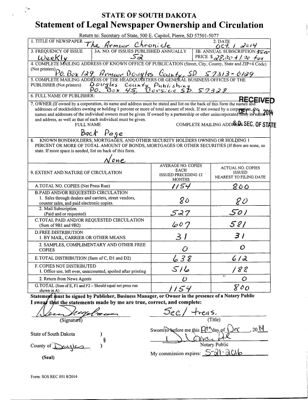 STATE OF SOUTH DAKOTA
Statement of Legal Newspaper Ownership and Circulation
Return to: Secretary of State, 500 E. Capitol, Pierre, SD 57501-5077
1. TITLE OF NEWSPAPER The Armour Chronicle
2. DATE Oct. 1, 2014
3. FREQUENCY OF ISSUE Weekly
3A. NO. OF ISSUES PUBLISHED ANNUALLY 52
3B. ANNUAL SUBSCRIPTION PRICE
4. COMPLETE MAILING ADDRESS OF KNOWN OFFICE OF PUBLICATION (Street, City, County, State and ZIP+4 Code) (Not printers)
P.O. Box 129, Armour, Douglas County, SD 57313-0129
5. COMPLETE MAILING ADDRESS OF THE HEADQUARTERS OR GENERAL BUSINESS OFFICES OF THE PUBLISHER (Not printer) Douglas County Publishing
P.O. Box 45, Corsica, SD 57328
6. FULL NAME OF PUBLISHER:
RECEIVED
7. OWNER (If owned by a corporation, its name and address must be stated and
addresses of stockholders owning or holding 1 percent or more of total amount of stock. If not owned by a
names and addresses of the individual owners must be given. If owned by a partnership or other unincorporated
address, as well as that of each individual must be given.
FULL NAME
COMPLETE MAILING
SEC. OF STATE
Back Page
8. KNOWN BONDHOLDERS, MORTGAGES, AND OTHER SECURITY HOLDERS OWNING OR HOLDING 1
PERCENT OR MORE OF TOTAL AMOUNT OF BONDS, MORTGAGES OR OTHER SECURITIES (If there are none, so
state. If more space is needed, list on back of this form.
None
9. EXTENT AND NATURE OF CIRCULATION
AVERAGE NO. COPIES EACH ISSUED PRECEDING 12 MONTHS
ACTUAL NO. COPIES ISSUED NEAREST TO FILING DATE
A. TOTAL NO. COPIES (Net Press Run) 1154 800
B. PAID AND/OR REQUESTED CIRCULATION
1. Sales through dealers and carriers, street vendors, counter sales, and paid electronic copies. 80 80
2. Mail Subscription (Paid and or requested) 527 501
C. TOTAL PAID AND/OR REQUESTED CIRCULATION (Sum of 9B1 and 9B2) 607 581
D. FREE DISTRIBUTION
1. BY MAIL, CARRIER OR OTHER MEANS 31 31
2. SAMPLES, COMPLIMENTARY AND OTHER FREE COPIES 0 0
E. TOTAL DISTRIBUTION (Sum of C, D1 and D2) 638 612
F. COPIES NOT DISTRIBUTED
1. Office use, left over, unaccounted, spoiled after printing 516 188
2. Return from News Agents 0 0
G. TOTAL (Sum of E, F1 and F2 – Should equal net press run shown in A) 1154 800
Statement must be signed by Publisher, Business Manager, or Owner in the presence of a Notary Public
I swear that the statements made by me are true, correct, and complete:
Sec/treas.
(Signature)
(Title)
State of South Dakota )
§
County of Douglas )
(Seal)
Sworn to before me this day of Dec, 2014
Notary Public
My commission expires: 5-21-2016
Form: SOS REC 051 8/2014